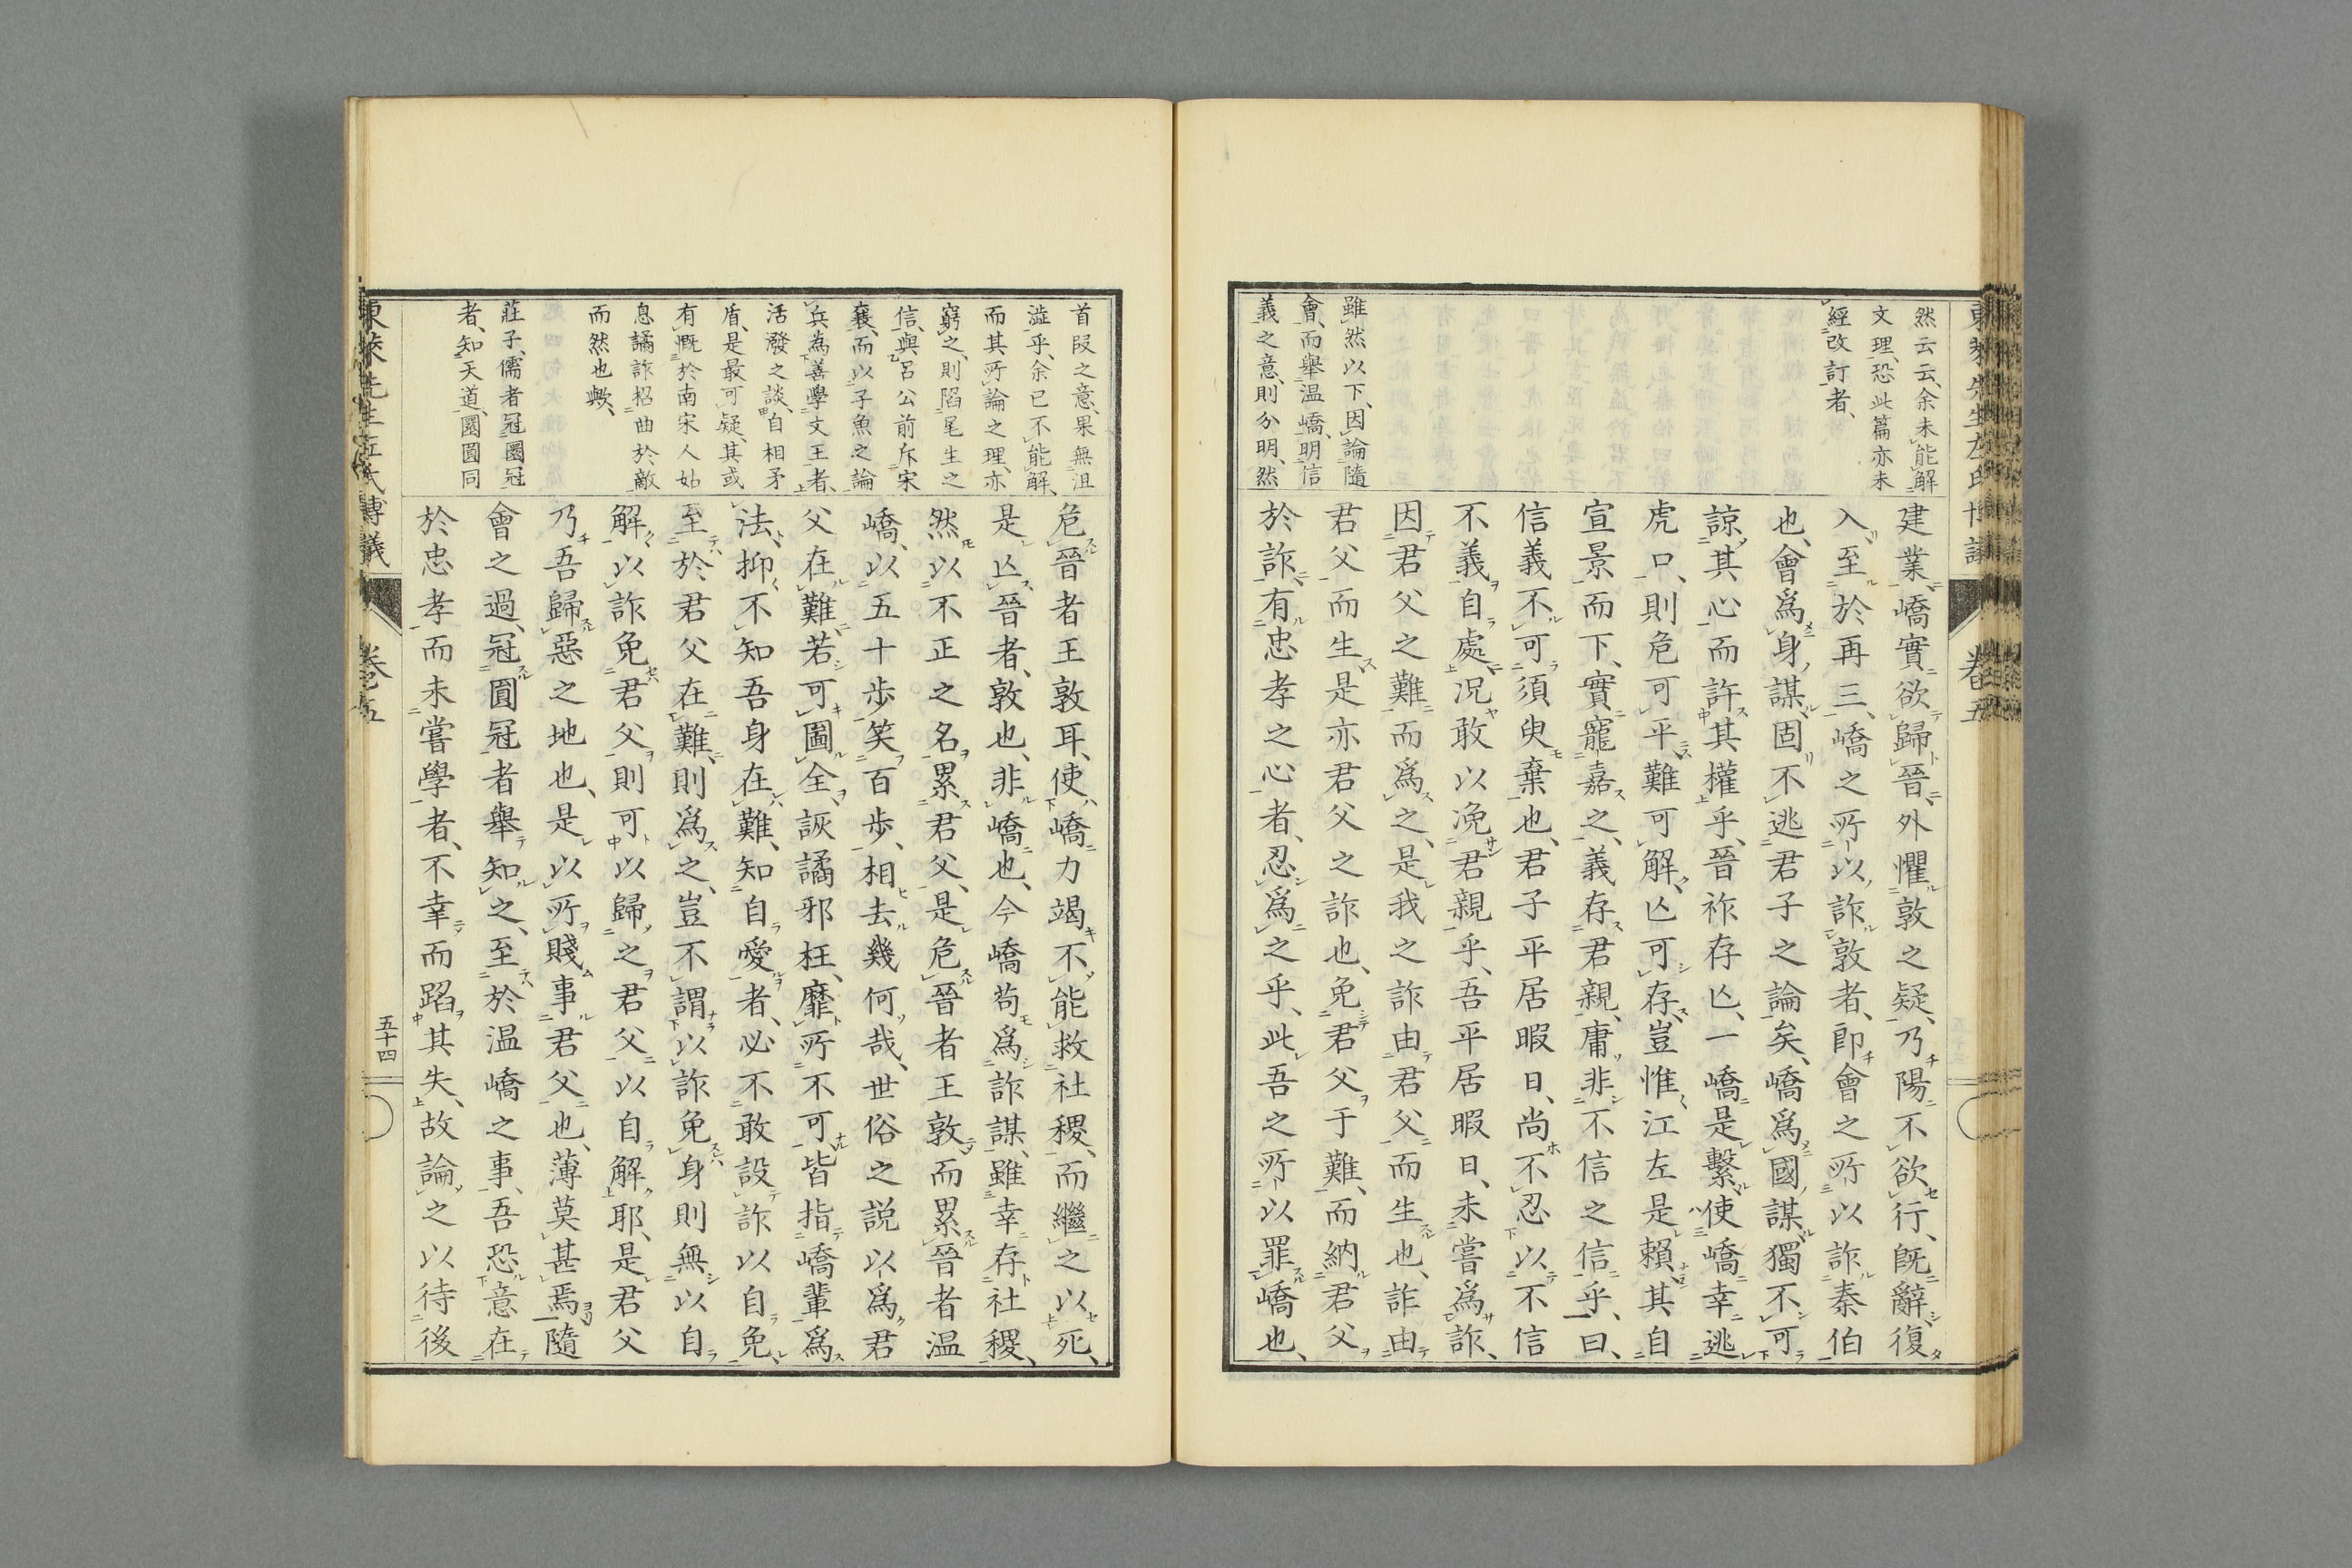 然云云、余未能解
文理、恐此篇亦未
經改訂者、
雖然以下、因論隨
會、而舉温嶠、明信
義之意、則分明、然
建業、嶠實欲歸晉、外懼敦之疑、乃陽不欲行、既辭、復
入、至於再三、嶠之所以詐敦者、卽會之所以詐秦伯
也、會爲身謀、固不逃君子之論矣、嶠爲國謀、獨不可
諒其心、而許其權乎、晉祚存亾、一嶠是繫、使嶠幸逃
虎口、則危可平、難可解、亾可存、豈惟江左是賴、其自
宣景而下、實寵嘉之、義存君親、庸非不信之信乎、曰、
信義不可須臾棄也、君子平居暇日、尚不忍以不信
不義自處、况敢以浼君親乎、吾平居暇日、未嘗爲詐、
因君父之難而爲之、是我之詐由君父而生也、詐由
君父而生、是亦君父之詐也、免君父于難、而納君父
於詐、有忠孝之心者、忍爲之乎、此吾之所以罪嶠也、
首段之意、果無沮
溢乎、余已不能解、
而其所論之理、亦
窮之、則陷尾生之
信、與呂公前斥宋
襄、而以子魚之論
兵為善學文王者、
活潑之談、自相矛
盾、是最可疑、其或
有慨於南宋人姑
息譎詐招曲於敵
而然也歟、
莊子、儒者冠圜冠
者、知天道、圜圓同
危晉者王敦耳、使嶠力竭不能救社稷、而繼之以死、
是亾晉者、敦也、非嶠也、今嶠苟爲詐謀、雖幸存社稷、
然以不正之名累君父、是危晉者王敦、而累晉者温
嶠、以五十步笑百步、相去幾何哉、世俗之説以爲君
父在難、若可圖全、詼譎邪枉、靡所不可、皆指嶠輩爲
法、抑不知吾身在難、知自愛者、必不敢設詐以自免、
至於君父在難、則爲之、豈不謂以詐免身則無以自
解、以詐免君父、則可以歸之君父、以自解耶、是君父
乃吾歸惡之地也、是以所賤事君父也、薄莫甚焉、隨
會之過、冠圓冠者舉知之、至於温嶠之事、吾恐意在
於忠孝而未嘗學者、不幸而蹈其失、故論之以待後
卷五
五十四